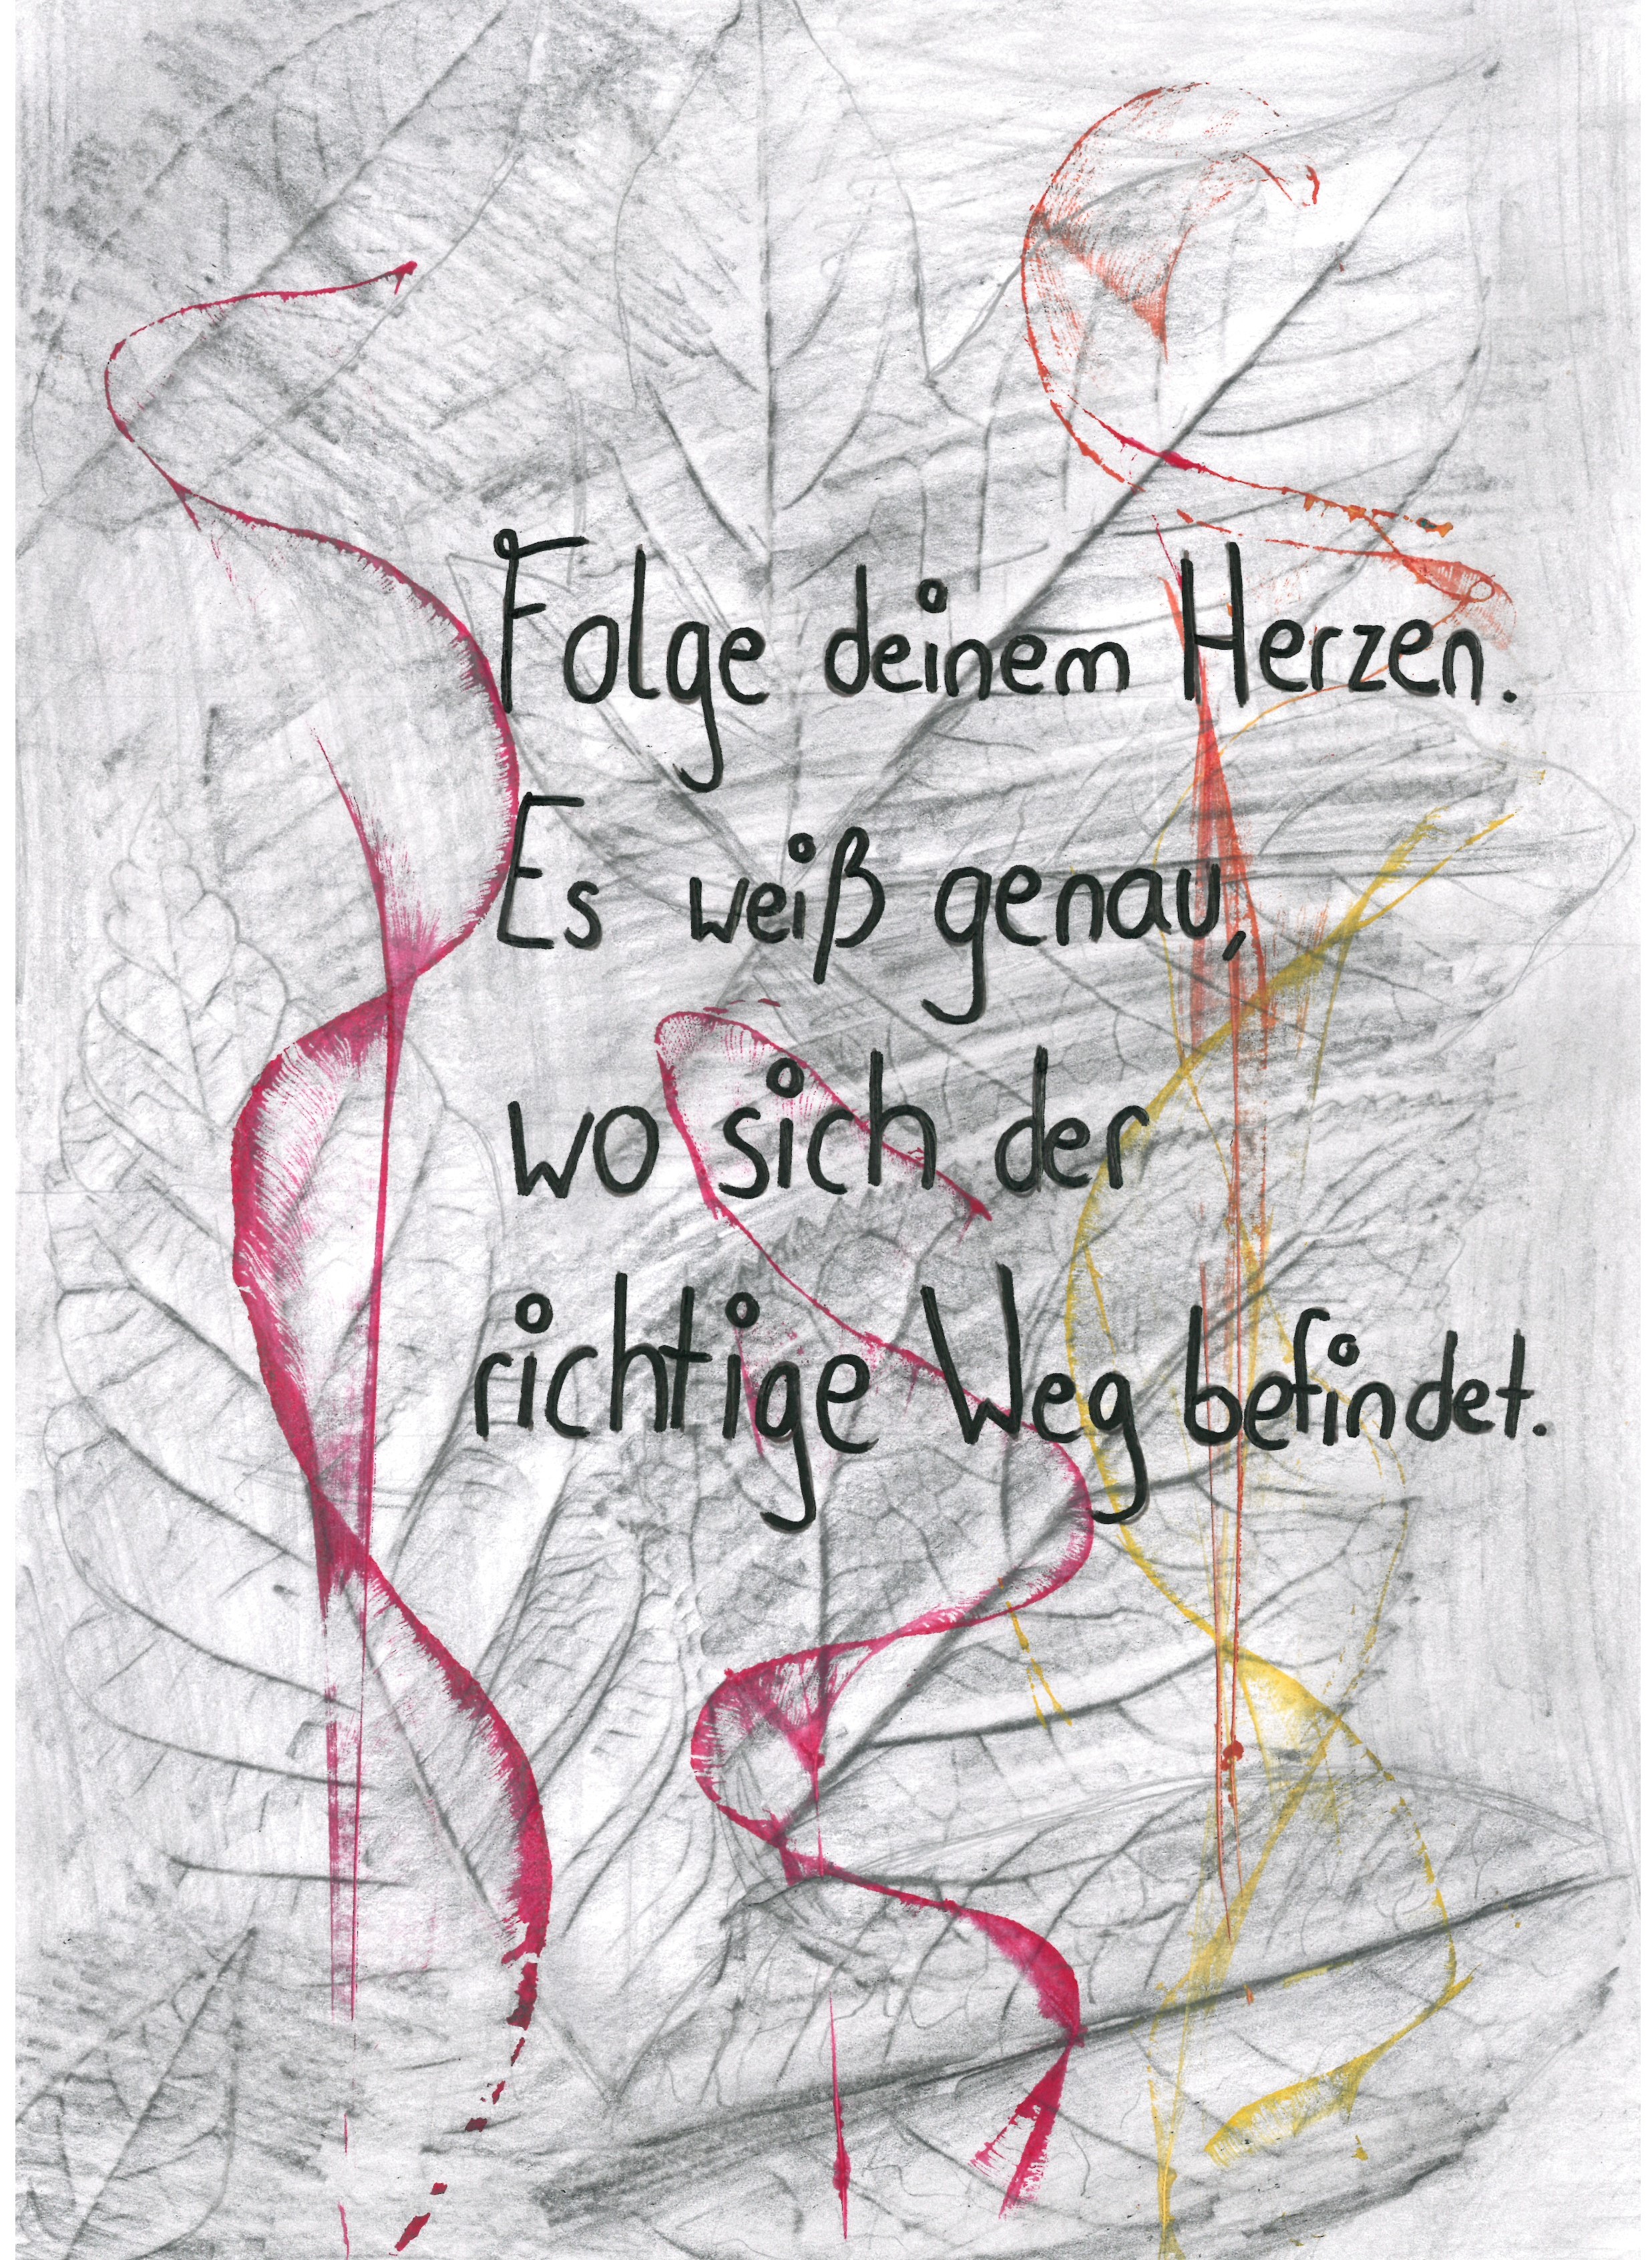 Folge deinem Herzen.
Es weiß genau,
wo sich der
richtige Weg befindet.